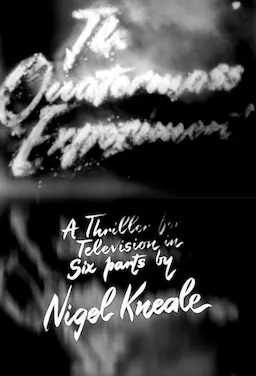 The
Quatermass
Experiment
A Thriller for
Television in
Six parts by
Nigel Kneale